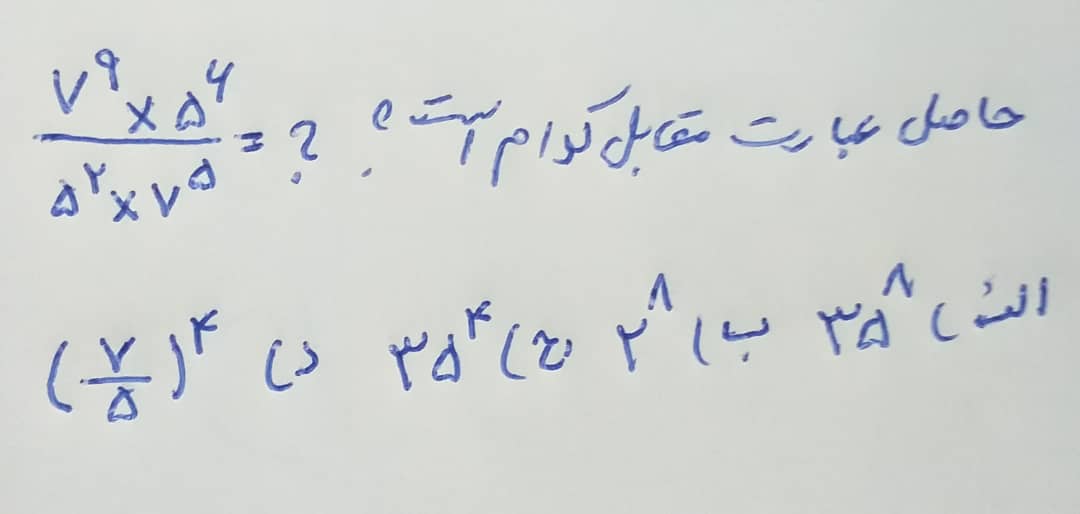 حاصل عبارت مقابل کدام است؟ (۷^۹ × ۵^۶)/(۵^۲ × ۷^۵) = ?
الف) ۳۵^۸ ب) ۲^۸ ج) ۳۵^۴ د) (۷/۵)^۴